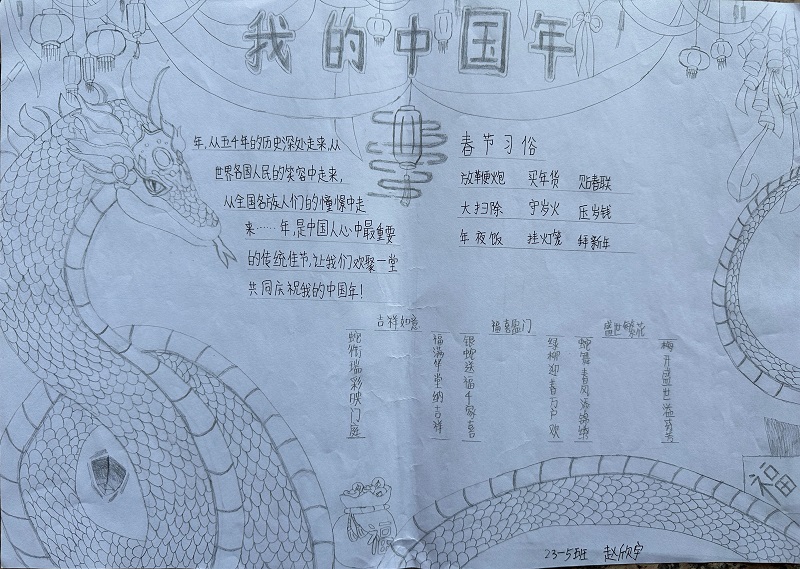 我的中国年
年,从五千年的历史深处走来,从
世界各国人民的笑容中走来,
从全国各族人们的憧憬中走
来……年,是中国人心中最重要
的传统佳节,让我们欢聚一堂
共同庆祝我的中国年!
春节习俗
放鞭炮 买年货 贴春联
大扫除 守岁火 压岁钱
年夜饭 挂灯笼 拜新年
吉祥如意
蛇衔瑞彩映门庭
福满华堂纳吉祥
福喜临门
银蛇送福千家喜
绿柳迎春万户欢
盛世繁花
蛇舞春风添锦绣
梅开盛世溢芬芳
福
福
23-5班 赵欣宇